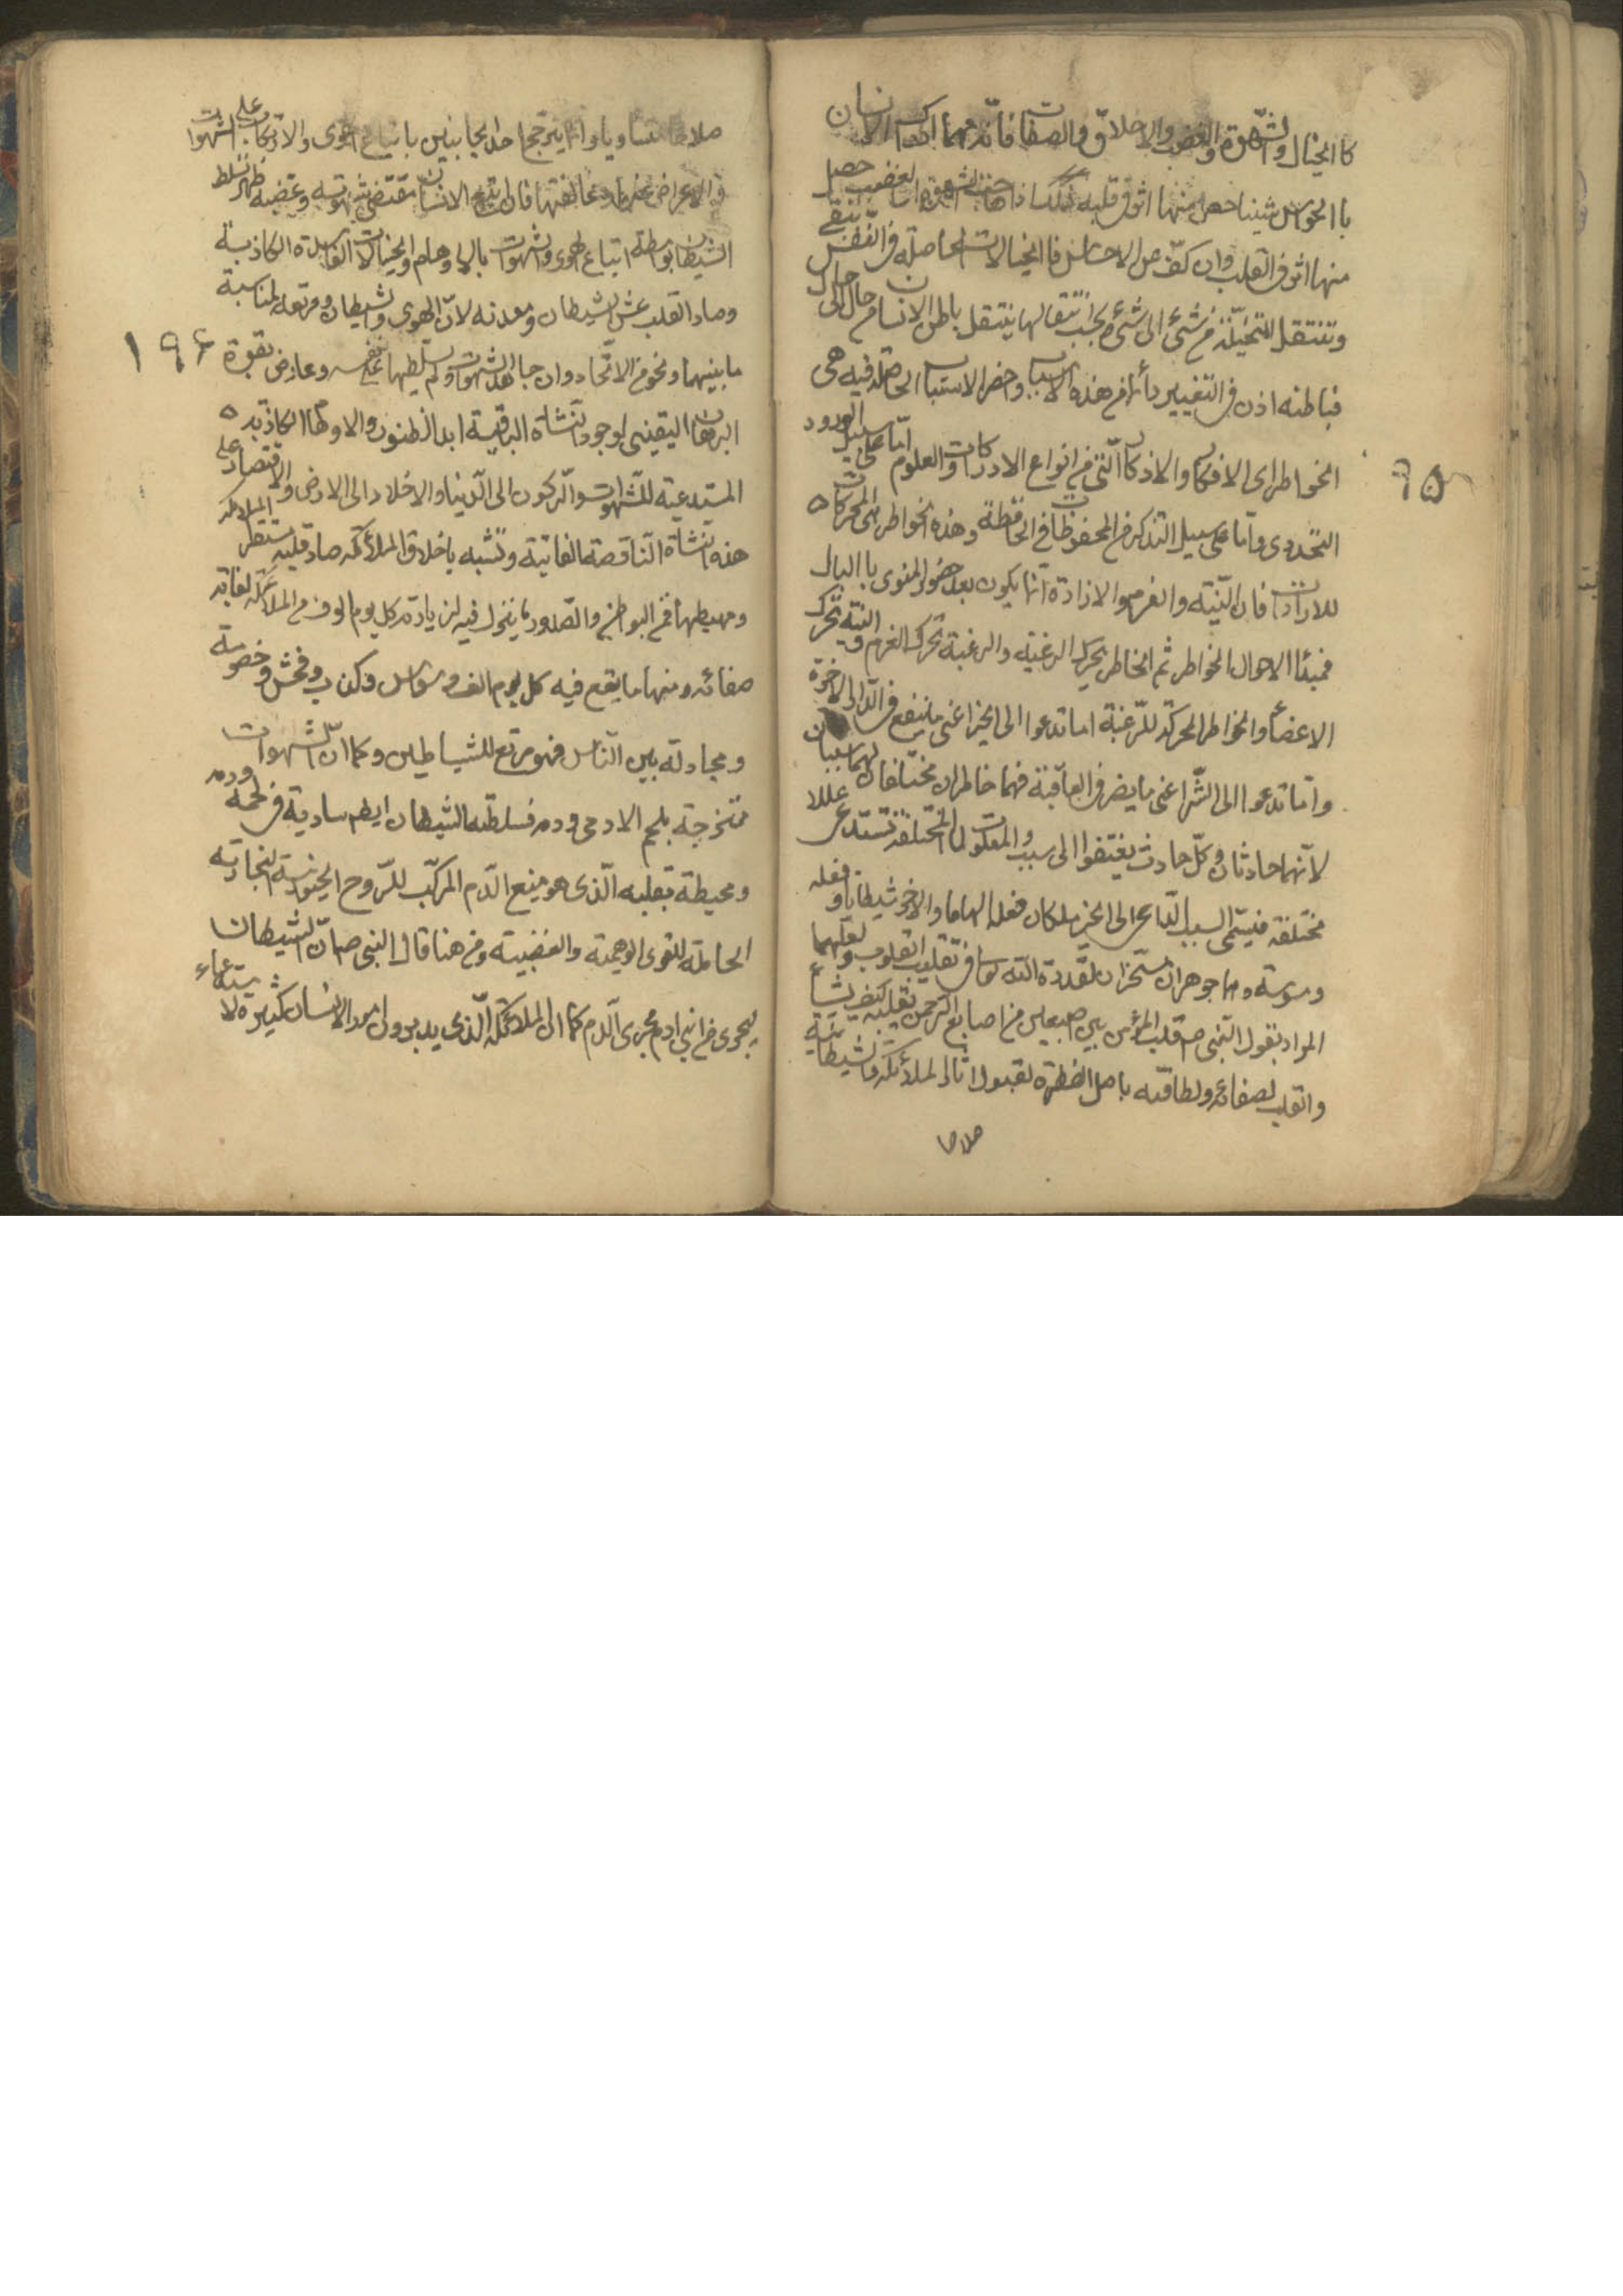 كا الخيال والشهوة والغضب والاخلاق والصفات فانه مهما ادرك الانسان
با الحواس شيئا حصل منها اثر فى قلبه وكذا اذا هاجت الشهوة او الغضب حصل
منها اثر فى القلب وان كف عن الاحساس فا الخيالات الحاصلة فى النفس تبقى
وتنتقل المتخيلة من شئ الى شئ وبحسب انتقالها ينتقل باطن الانسان من حال الى حال
فباطنه اذن فى التغيير دائما من هذه الاسباب واخص الاسباب الحاصلة فيه هى
الخواطر اى الافكار والاذكار التى من انواع الادراكات والعلوم اما على سبيل الورود
التجددى واما على سبيل التذكر من المحفوظات فى الحافظة وهذه الخواطر هى المحركات
للارادات فان النية والعزم والارادة انما يكون بعد حضور المنوى با البال
فمبدئا الاحوال الخواطر ثم الخاطر يحرك الرغبة والرغبة تحرك العزم والنية تحرك
الاعضأ والخواطر المحركة للرغبة اما تدعوا الى الخير اعنى ما ينفع فى الدار الاخرة
واما تدعوا الى الشر اعنى ما يضر فى العاقبة فهما خاطران مختلفان لهما سببان
لانهما حادثان وكل حادث يفتقر الى سبب والمعلولات المختلفة تستدعى عللا
مختلفة فيسمى السبب الداعى الى الخير ملكا وفعله الهاما والاخر شيطانا وفعله
وسوسة وهما جوهران مسخران لقدرة الله تعالى فى تقليب القلوب ولعلهما
المراد بقول النبى ص قلب المؤمن بين اصبعين من اصابع الرحمن يقلبه كيف يشأ
والقلب لصفائه ولطافته باصل الفطرة لقبول اثار الملائكة والشيطانية
صلاحا
٩٥
صلاحا متساويا وانما يترجح احد الجانبين باتباع الهوى والاكباب على الشهوات
او الاعراض عنها ومخالفتها فان اتبع الانسان مقتضى شهوته وغضبه ظهر تسلط
الشيطان بواسطة اتباع الهوى والشهوات بالاوهام والخيالات الفاسدة الكاذبة
وصار القلب عش الشيطان ومعدنه لان الهوى والشيطان ومرتعه لمناسبة
ما بينهما ونحو من الاتحاد وان جاهد الشهوات ولم يسلطها على نفسه وعارض بقوة
البرهان اليقينى لوجود النشاة الباقية ابد الظنون والاوهام الكاذبة
المستدعية للشهوات والركون الى الدنيا والاخلاد الى الارض والاقتصار على
هذه النشاة الناقصة الفانية وتشبه باخلاق الملائكة صار قلبه مستقر الملائكة
ومهبطها فمن البواطن والصدور ما ينزل فيه لزيارته كل يوم الوف من الملائكة لغاية
صفائه ومنها ما يقع فيه كل يوم الف وسواس وكذب وفحش وخصومة
ومجادلة بين الناس فهو مرتع للشياطين وكما ان الشهوات
ممتزجة بلحم الادمى ودمه فسلطنه الشيطان ايضا سارية فى لحمه ودمه
ومحيطة بقلبه الذى هو منبع الدم المركب للروح الحيوانية البخارية
الحاملة للقوى الوهمية والغضبية ومن هنا قال النبى ص ان الشيطان
ليجرى من ابن ادم مجرى الدم كما ان الملائكة الذى يدبرون امور الانسان كثيرة لاستدعاء
١٩۶